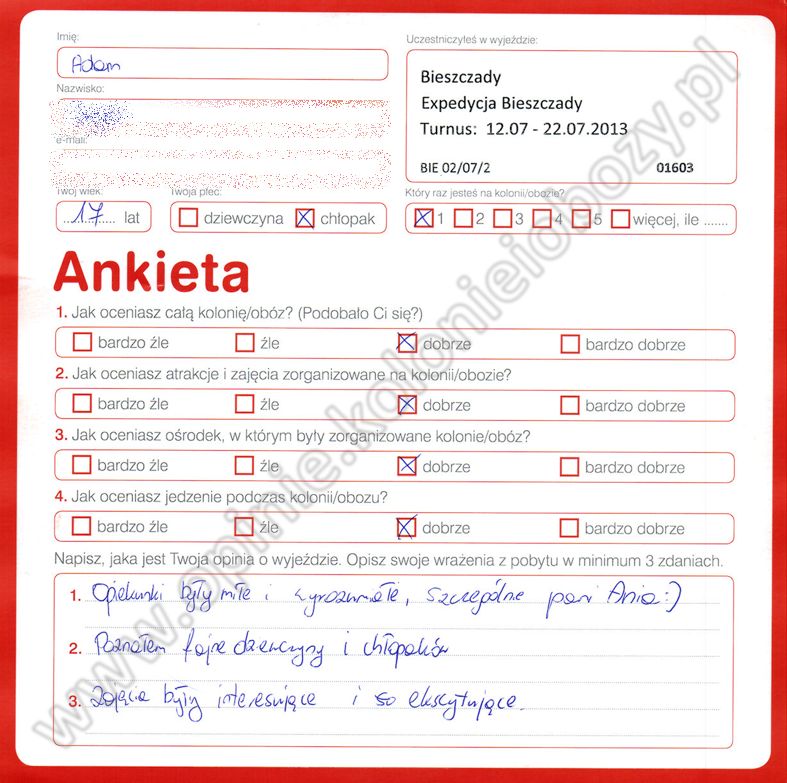 Imię:
Adam
Nazwisko:
e-mail:
Twój wiek:
17 lat
Twoja płeć:
dziewczyna chłopak
Uczestniczyłeś w wyjeździe:
Bieszczady
Expedycja Bieszczady
Turnus: 12.07 - 22.07.2013
BIE 02/07/2 01603
Który raz jesteś na kolonii/obozie?
1 2 3 4 5 więcej, ile .......
Ankieta
1. Jak oceniasz całą kolonię/obóz? (Podobało Ci się?)
bardzo źle źle dobrze bardzo dobrze
2. Jak oceniasz atrakcje i zajęcia zorganizowane na kolonii/obozie?
bardzo źle źle dobrze bardzo dobrze
3. Jak oceniasz ośrodek, w którym były zorganizowane kolonie/obóz?
bardzo źle źle dobrze bardzo dobrze
4. Jak oceniasz jedzenie podczas kolonii/obozu?
bardzo źle źle dobrze bardzo dobrze
Napisz, jaka jest Twoja opinia o wyjeździe. Opisz swoje wrażenia z pobytu w minimum 3 zdaniach.
1. Opiekunki były miłe i wyrozumiałe, szczególne pani Ania :)
2. Poznałem fajne dziewczyny i chłopaków
3. Zajęcia były interesujące i so ekscytujące.
www.opinie.kolonieiobozy.pl